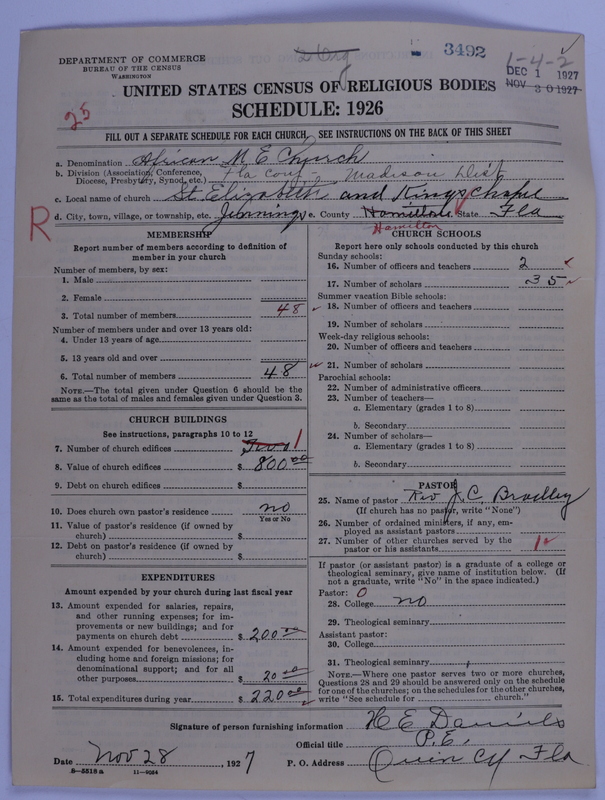 3492
1-4-2
DEPARTMENT OF COMMERCE
BUREAU OF THE CENSUS
WASHINGTON
DEC 1 1927
NOV 30 1927
UNITED STATES CENSUS OF RELIGIOUS BODIES
SCHEDULE: 1926
25
FILL OUT A SEPARATE SCHEDULE FOR EACH CHURCH. SEE INSTRUCTIONS ON THE BACK OF THIS SHEET
a. Denomination African M E Church
b. Division (Association, Conference, Diocese, Presbytery, Synod, etc.) Fla Conf - Madison Dist
c. Local name of church St. Elizabeth and Kings Chapel
d. City, town, village, or township, etc. Jennings e. County Hamilton State Fla
Hamilton
R
MEMBERSHIP
Report number of members according to definition of
member in your church
Number of members, by sex:
1. Male
2. Female
3. Total number of members 48
Number of members under and over 13 years old:
4. Under 13 years of age
5. 13 years old and over
6. Total number of members 48
NOTE.—The total given under Question 6 should be
same as the total of males and females given under Question 3.
CHURCH BUILDINGS
See instructions, paragraphs 10 to 12
7. Number of church edifices Two 1
8. Value of church edifices $ 800.00
9. Debt on church edifices $
10. Does church own pastor's residence no
Yes or No
11. Value of pastor's residence (if owned by
church) $
12. Debt on pastor's residence (if owned by
church) $
EXPENDITURES
Amount expended by your church during last fiscal year
13. Amount expended for salaries, repairs,
and other running expenses; for im-
provements or new buildings; and for
payments on church debt $ 200.00
14. Amount expended for benevolences, in-
cluding home and foreign missions; for
denominational support; and for all
other purposes $ 20.00
15. Total expenditures during year $ 220.00
CHURCH SCHOOLS
Report here only schools conducted by this church
Sunday schools:
16. Number of officers and teachers 2
17. Number of scholars 35
Summer vacation Bible schools:
18. Number of officers and teachers
19. Number of scholars
Week-day religious schools:
20. Number of officers and teachers
21. Number of scholars
Parochial schools:
22. Number of administrative officers
23. Number of teachers—
a. Elementary (grades 1 to 8)
b. Secondary
24. Number of scholars—
a. Elementary (grades 1 to 8)
b. Secondary
PASTOR
25. Name of pastor Rev J. C. Bradley
(If church has no pastor, write "None")
26. Number of ordained ministers, if any, em-
ployed as assistant pastors
27. Number of other churches served by the
pastor or his assistants 1
If pastor (or assistant pastor) is a graduate of a college or
theological seminary, give name of institution below. (If
not a graduate, write "No" in the space indicated.)
Pastor: 0
28. College no
29. Theological seminary
Assistant pastor:
30. College
31. Theological seminary
NOTE.—Where one pastor serves two or more churches,
Questions 28 and 29 should be answered only on the schedule
for one of the churches; on the schedules for the other churches,
write "See schedule for church."
Signature of person furnishing information H E Daniels
Official title P.E.
Date Nov 28, 1927 P. O. Address Quincy Fla
8-5518 a 11-9034